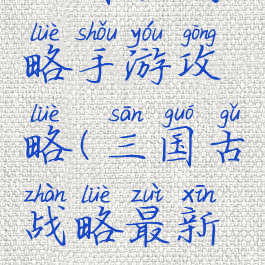 lüè shǒu yóu gōng
略手游攻
lüè sān guó gǔ
略(三国古
zhàn lüè zuì xīn
战略最新